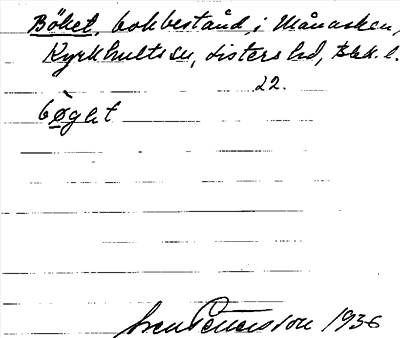 Böket, bokbestånd, i Månasken,
Kyrkhults sn, Listers hd, Blek. l.
22.
bø̀get
Sven Pettersson 1936